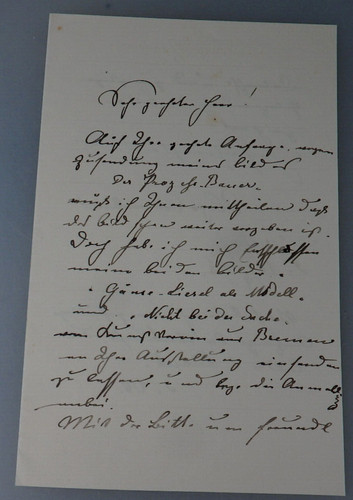 Sehr geehrter Herr!
Auf Ihre geehrte Anfrage wegen
Zusendung meines Bildes
Der Prozeß-Bauer
muß ich Ihnen mittheilen daß
das Bild schon weiter vergeben ist.
Doch habe ich mich entschlossen
meine beiden Bilder
"Gänse-Liesel als Modell"
und "Nicht bei der Sache"
vom Kunstverein aus Bremen
an Ihre Ausstellung einsenden
zu lassen, und lege die Anmeldg
anbei.
Mit der Bitte um freundl